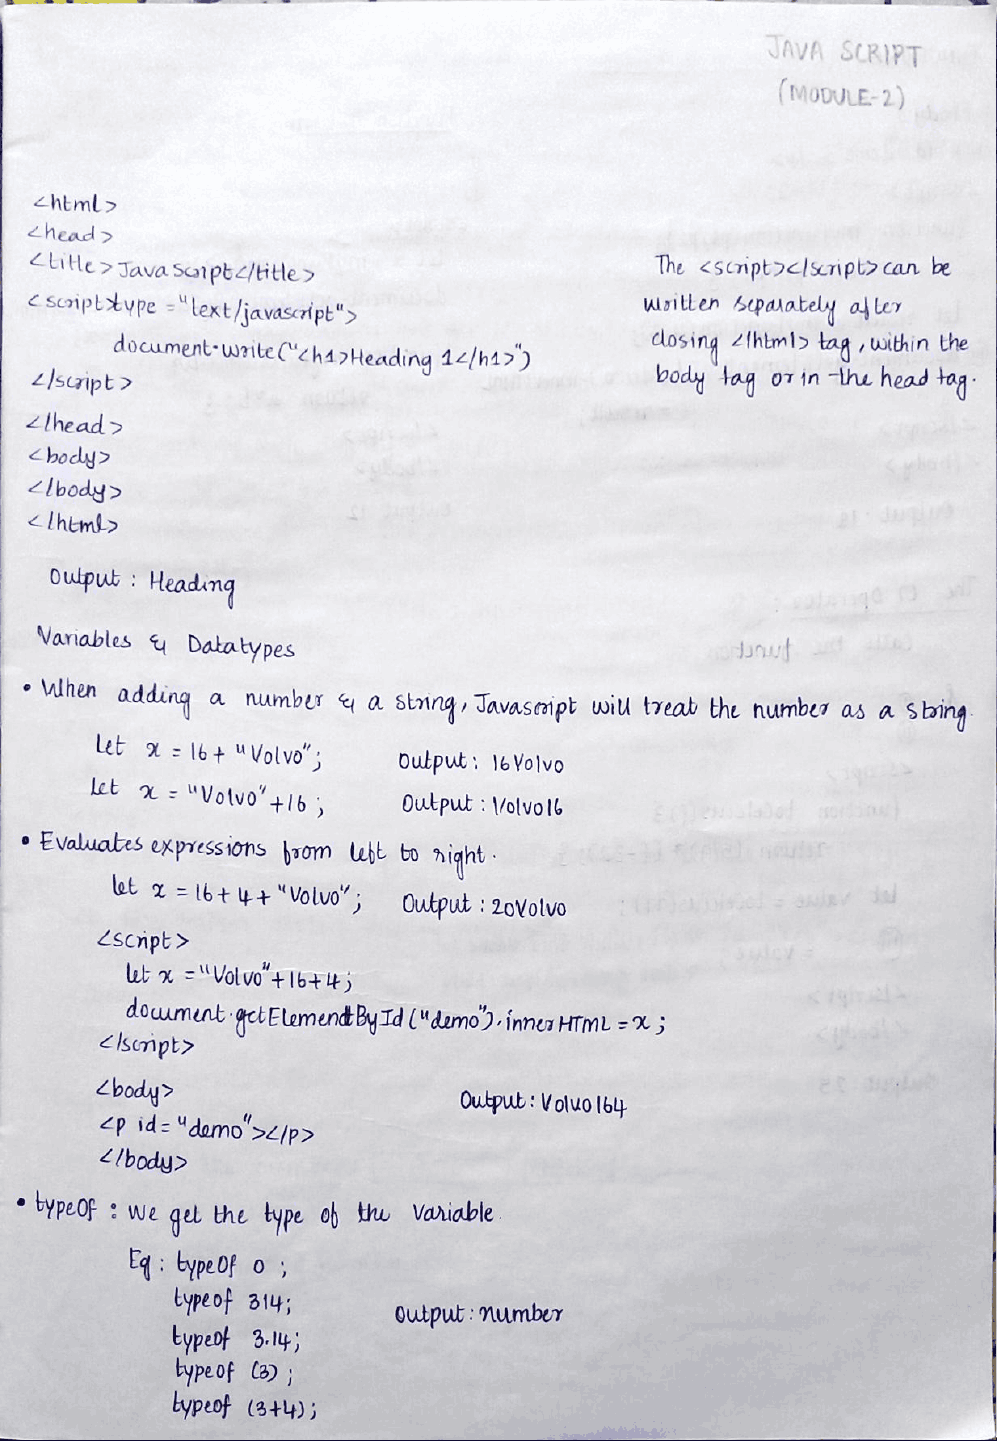 JAVA SCRIPT
(MODULE-2)
<html>
<head>
<title>Java Script</title>
<script type="text/javascript">
document.write("<h1>Heading 1</h1>")
</script>
</head>
<body>
</body>
</html>
The <script></script> can be
written separately after
closing </html> tag, within the
body tag or in the head tag.
Output : Heading
Variables & Datatypes
• When adding a number & a string, Javascript will treat the number as a string.
Let x = 16 + "Volvo"; Output : 16Volvo
Let x = "Volvo" + 16 ; Output : Volvo16
• Evaluates expressions from left to right.
let x = 16 + 4 + "Volvo"; Output : 20Volvo
<script>
let x = "Volvo" + 16 + 4;
document.getElementById("demo").innerHTML = x ;
</script>
<body>
<p id="demo"></p>
</body>
Output : Volvo164
• typeOf : We get the type of the variable.
Eg : typeOf 0 ;
typeof 314;
typeof 3.14;
typeof (3) ;
typeof (3+4);
Output : number